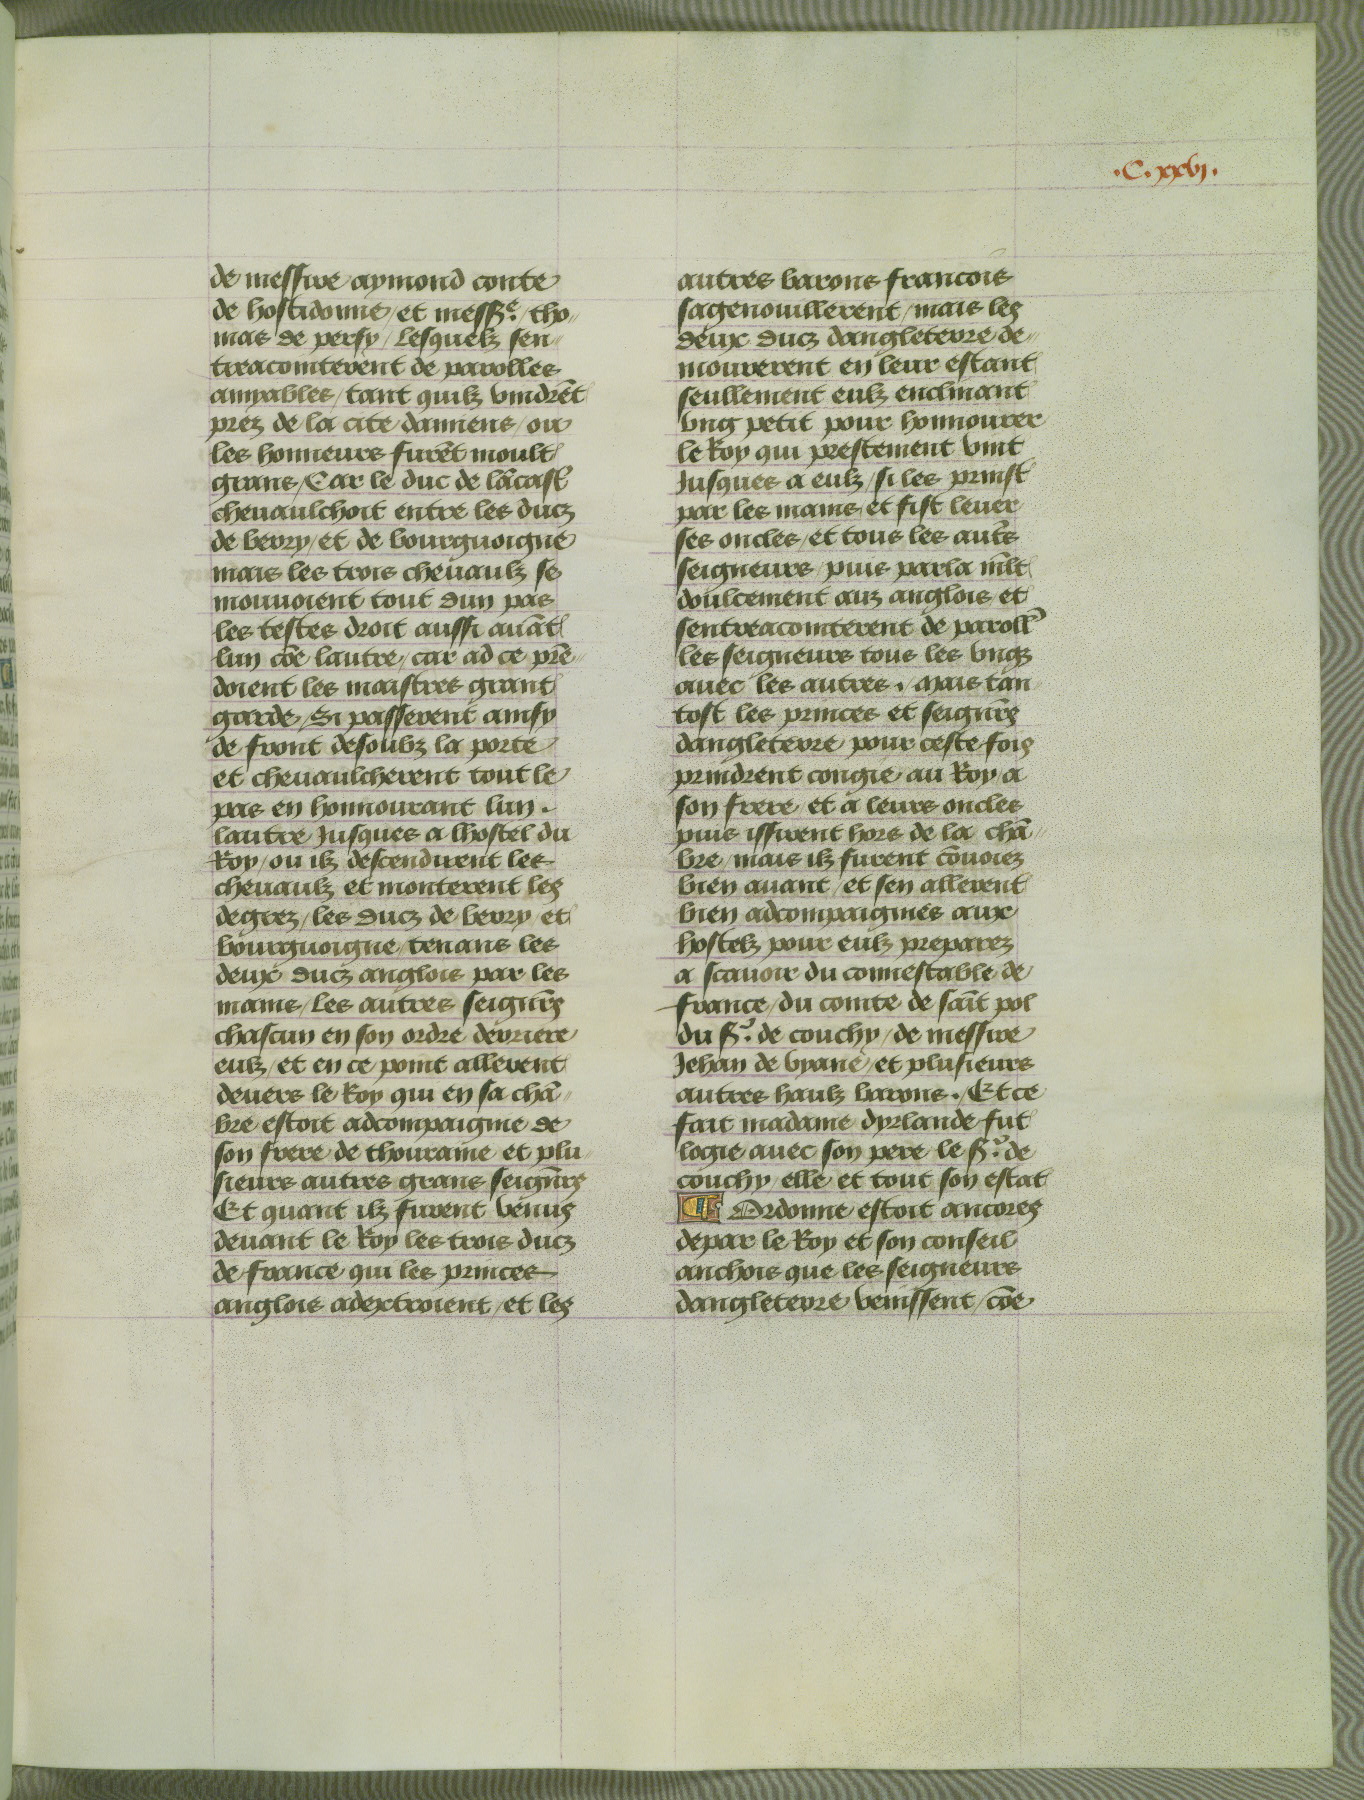 ·C·xxvj·
de messire aymond conte
de hostidonne / et mess.ᵉ / tho//
mas de persy / lesquelz sen//
treacointerent de parolles
amyables / tant quilz vindrēt
prez de la cite damiens / ou
les honneurs furēt moult
grans / Car le duc de lācast
cheuaulchoit entre les ducz
de berry / et de bourguoigne
mais les trois cheuaulz se
mouuoient tout dun pas
les testes droit aussi auāt
lun cōe lautre / car ad ce prē//
doient les maistres grant
garde / Si passerent ainsy
de front desoubz la porte
et cheuaulcherent tout le
pas en honnourant lun .
lautre Jusques a lhostel du
Roy / ou ilz descendirent les
cheuaulz et monterent les
degrez / les ducz de berry et
bourguoigne / tenans les
deux ducz anglois par les
mains / les autres seignrs̄
chascun en son ordre derriere
eulz / et en ce point allerent
deuers le Roy qui en sa chā//
bre estoit adcompaigne de
son frere de thouraine et plu
sieurs autres grans seignrs̄
Et quant ilz furent venus
deuant le Roy les trois ducz
de france qui les princes
anglois adextroient / et les
autres barons francois
sagenouillerent / mais les
deux ducz dangleterre de//
mourerent en leur estant
seullement eulz enclinant
vng petit pour honnourer
le Roy qui prestement vint
Jusques a eulz / si les prinst
par les mains et fist leuer
ses oncles / et tous les aut̄s
seigneurs / puis parla mlt̄
doulcement auz anglois et
sentreacointerent de paroll̄
les seigneurs tous les vngz
auec les autres . Mais tan
tost les princes et seignrs̄
dangleterre pour ceste fois
prindrent congie au Roy a
son frere et a leurs oncles
puis issirent hors de la chā//
bre / mais ilz furent cōuoiez
bien auant / et sen allerent
bien adcompaignies aux
hostelz pour eulz preparez
a scauoir du connestable de
france / du comte de saīt pol
du Sʳ. de couchy / de messire
Jehan de vyane / et plusieurs
autres haulz barons . Et ce
fait madame dyrlande fut
logie auec son pere le Sʳ. de
couchy / elle et tout son estat
¶ Ordonne estoit ancores
depar le Roy et son conseil
anchois que les seigneurs
dangleterre venissent / cōe